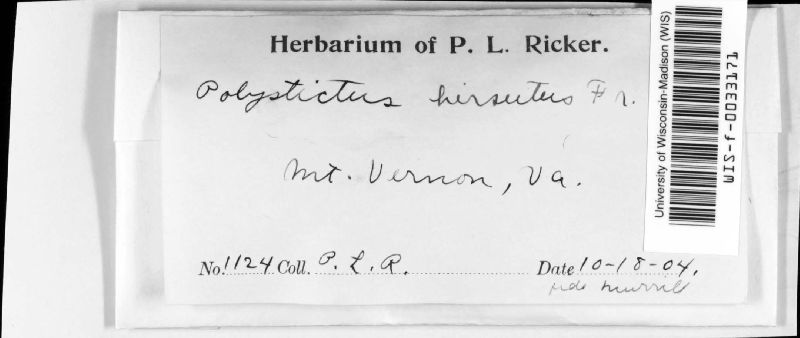 Herbarium of P. L. Ricker.
Polystictus hirsutus Fr.
Mt. Vernon, Va.
No. 1124 Coll. P. L. R. Date 10-18-04.
fide Murrill
University of Wisconsin-Madison (WIS)
WIS-f-0033171